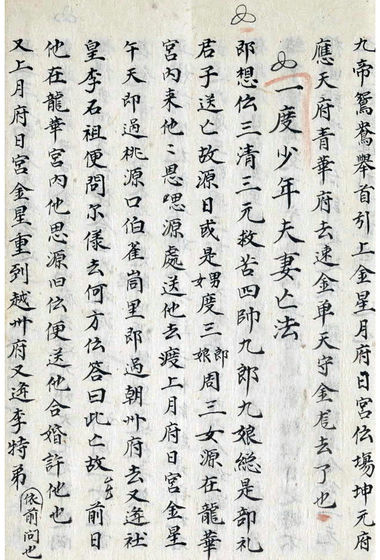 九帝鴛鴦舉首引上金星月府日宮伝場坤元府
應天府青華府去速金单天守金鳶去了也
一度少年夫妻亡法
即想伝三清三元救苦四帥九郎九娘総是部礼
君子送亡故源日或是男甥度三郎娘周三女源在龍華
宮内来他〻思嗯源處送他去渡上月府日宮金星
午天即過桃源口伯雀崗里即過朝州府去又逢社
皇李石祖便問尔様去何方伝答曰此亡故年前日
他在龍華宮内他思源旧伝便送他合婚許他也
又上月府日宮金星重到越卅府又逢李特弟依前问也